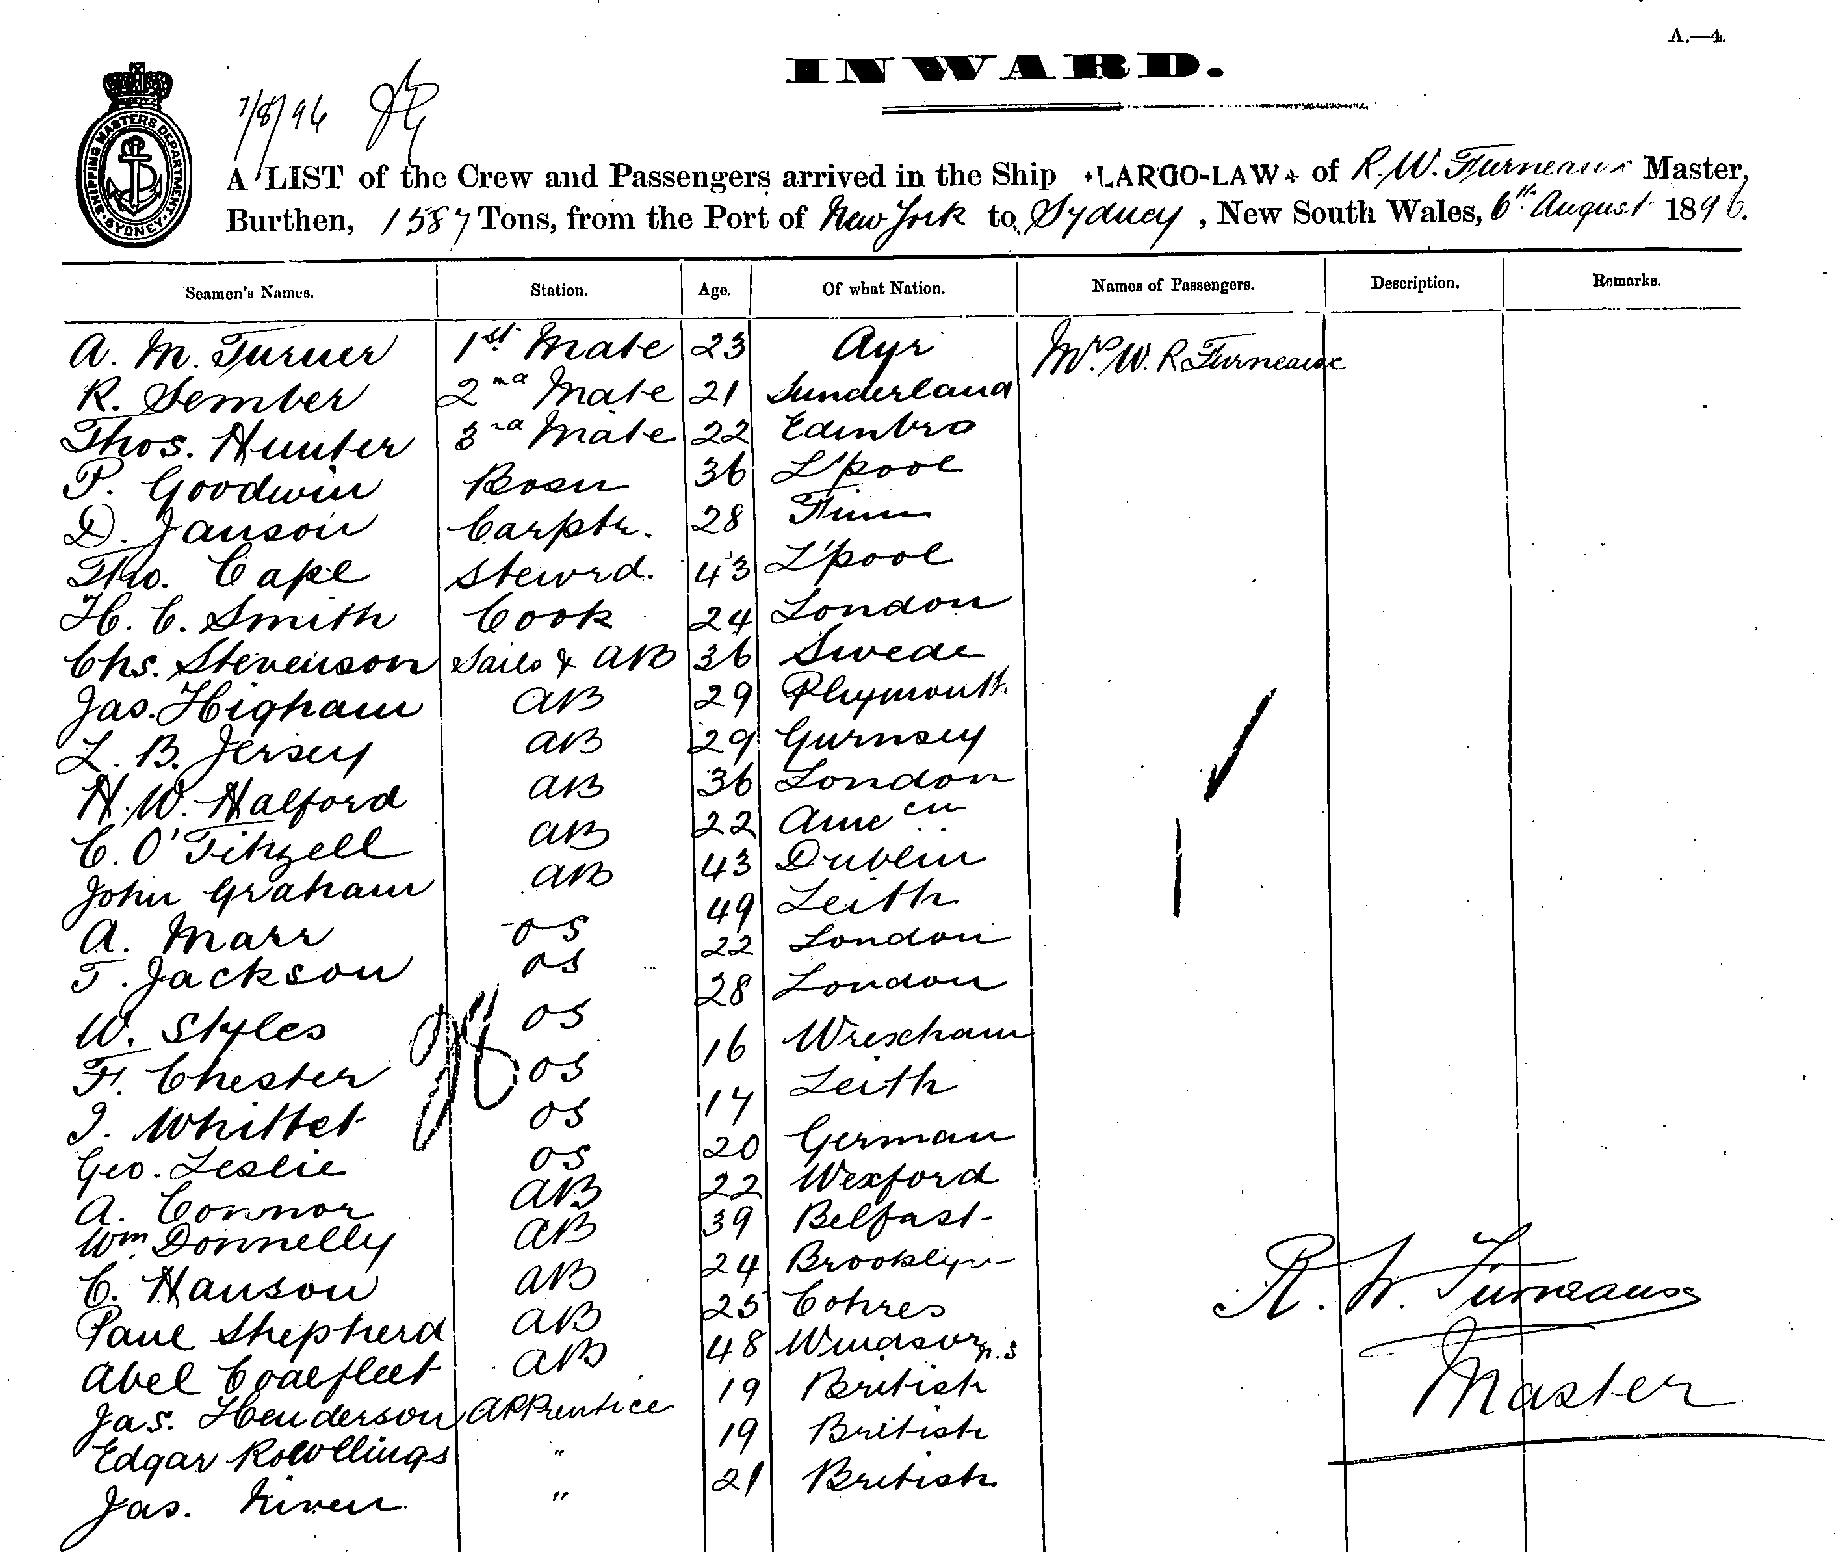 A.—4.
INWARD.
7/8/96
SHIPPING MASTERS DEPARTMENT SYDNEY
A LIST of the Crew and Passengers arrived in the Ship LARGO-LAW of R. W. Furneaux Master,
Burthen, 1587 Tons, from the Port of New York to Sydney, New South Wales, 6th August 1896.
Seamen's Names. Station. Age. Of what Nation. Names of Passengers. Description. Remarks.
A. M. Turner 1st Mate 23 Ayr Mrs. W. R Furneaux
R. Sember 2nd Mate 21 Sunderland
Thos. Hunter 3rd Mate 22 Edinbro
P. Goodwin Bosn 36 L'pool
D. Janson Carptr. 28 Finn
Tho. Cape Stewrd. 43 L'pool
H. C. Smith Cook 24 London
Chs. Stevenson Sails & AB 36 Swede
Jas. Higham AB 29 Plymouth
L. B. Jersey AB 29 Gurnsey
H. W. Halford AB 36 London
C. O'Fitzell AB 22 Amecn
John Graham AB 43 Dublin
A. Marr OS 49 Leith
T. Jackson OS 22 London
W. Styles OS 28 London
F. Chester OS 16 Wrexham
J. Whittet OS 17 Leith
Geo. Leslie OS 20 German
A. Connor AB 22 Wexford
Wm Donnelly AB 39 Belfast
C. Hanson AB 24 Brooklyn
Paul Shepherd AB 25 Cohres
Abel Coalfleet AB 48 Windsor n.s
Jas. Henderson Apprentice 19 British
Edgar Rowllings " 19 British
Jas. Niven " 21 British
R. W. Furneaux
Master